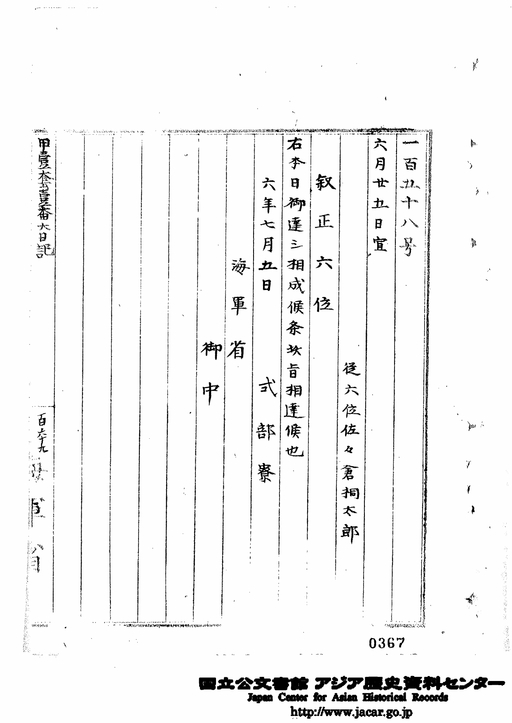 一百五十八号
六月廿五日宣
従六位佐々倉桐太郎
叙正六位
右本日御達ニ相成候条此旨相達候也
六年七月五日
式部寮
海軍省
御中
百六十九
0367
国立公文書館 アジア歴史資料センター
Japan Center for Asian Historical Records
http://www.jacar.go.jp